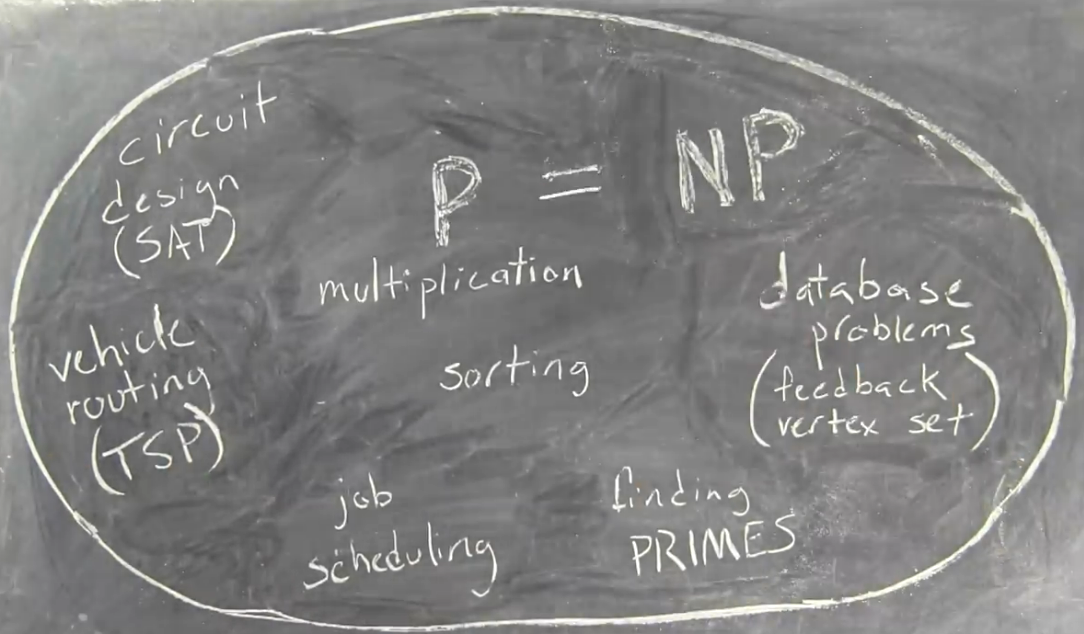 circuit
design
(SAT)
P = NP
multiplication
sorting
database
problems
(feedback
vertex set)
vehicle
routing
(TSP)
job
scheduling
finding
PRIMES